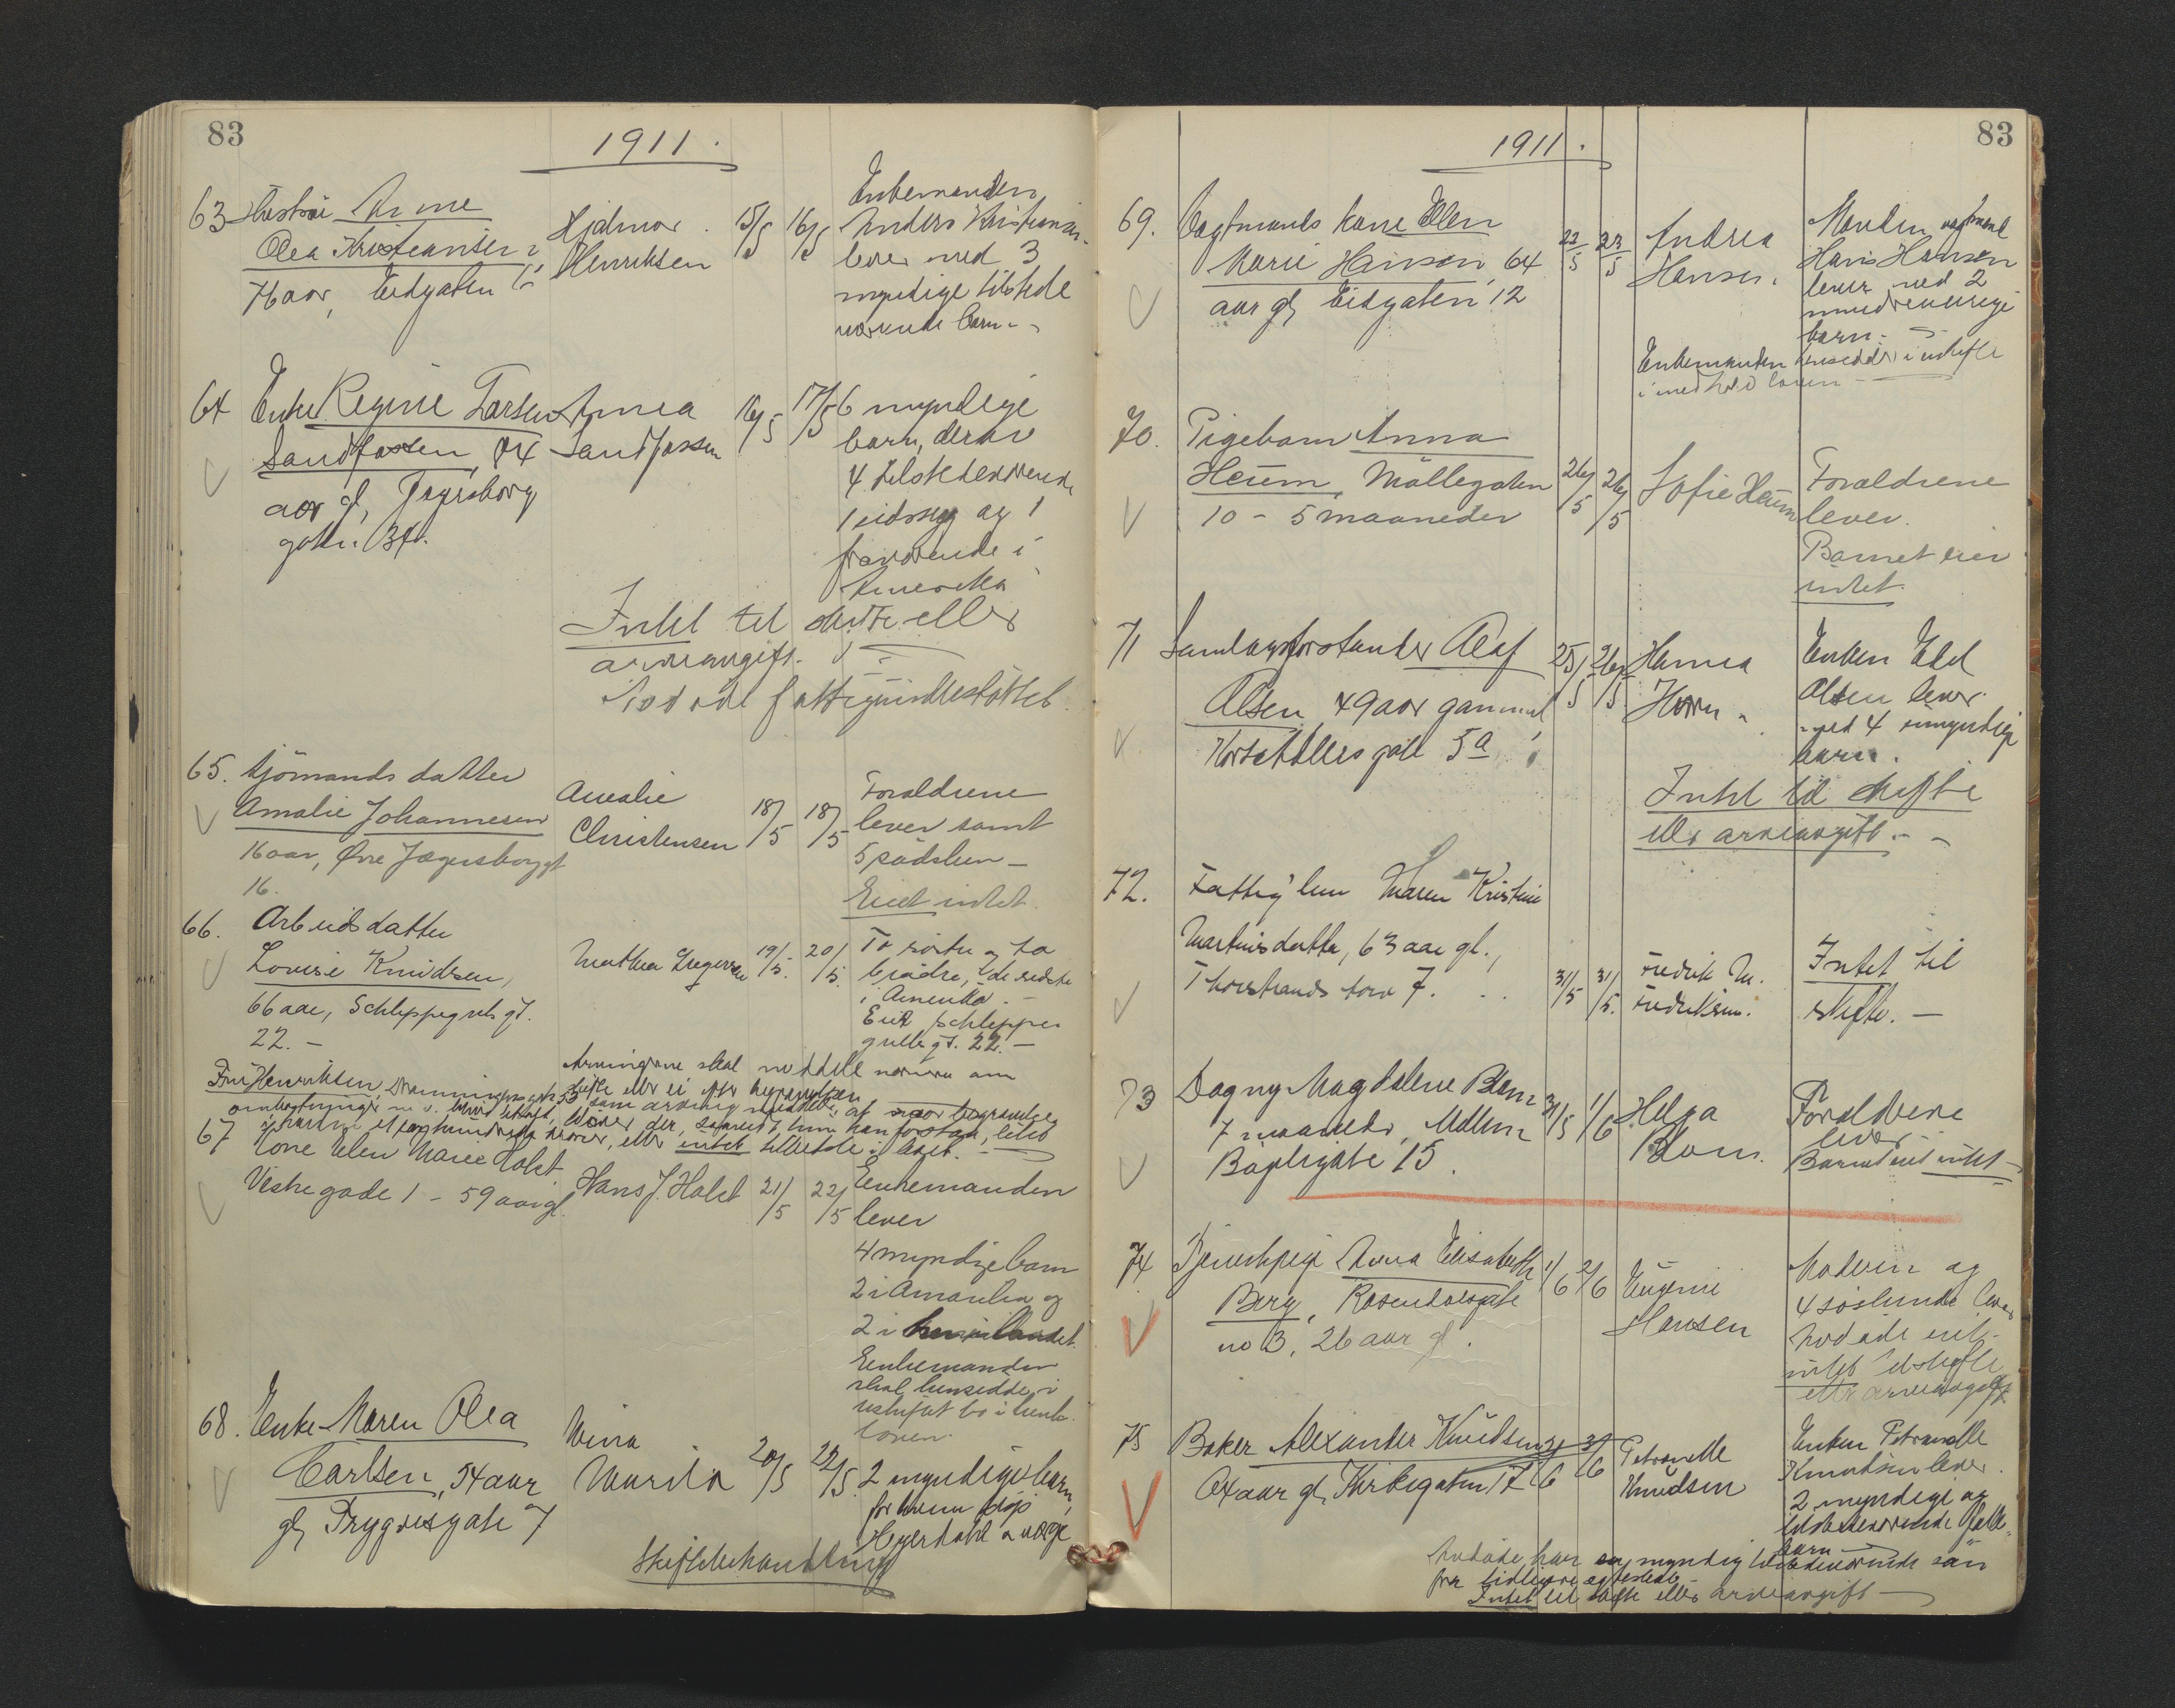 83
1911.
63 Hustru Anne
Olea Kristiansen,
76 aar, Eidgaten 6
Hjalmar
Henriksen
15/5 16/5
Enkemanden
Anders Kristiansen
lever med 3
myndige tilstede
værende barn.
64 Enke Regine Larsen
Sandfossen, 84
aar gl,
gaten 34.
Anna
Sandfossen
16/5 17/5
6 myndige
barn, derav
4 tilstedeværende
1 sindssyg og 1
fraværende i
Amerika
Intet til skifte eller
arveavgift.
Avdøde fattigunderstøttet.
65. Sjømands datter
Amalie Johannesen
16 aar, Øvre Jægersborggt
16.
Amalie
Christensen
18/5 18/5
Forældrene
lever samt
5 sødsken –
Eiet intet.
66. Arbeids datter
Louise Knudsen,
66 aar, Schleppegrels gt.
22. –
Mathea Gregersen
19/5. 20/5.
To søstre og to
brødre, de sidste
i Amerika. –
Eiet Schleppe-
grells gt. 22. –
Arvingerne skal meddele nærmere om
skifte eller ei efter begravelsen
Fru Henriksen,
som arving meddeler, at naar begravelses
omkostninger
kroner, eller intet tilbake i boet.
67 Kone Elen Marie Holst
Vestregade 1 – 59 aar gl.
Hans J. Holst
21/5 22/5
Enkemanden
lever
4 myndige barn
2 i Amerika og
2 i
Enkemanden
skal hensidde i
uskiftet bo i henh.
loven.
68. Enke Maren Olea
Carlsen, 54 aar
gl, Trygvesgate 7
Nina
20/5 22/5
2 myndige barn,
for hvem
Heyerdahl er værge
Skiftebehandling
83
1911.
69. Vagtmands kone Ellen
Marie Hansen, 64
aar gl, Eidgaten 12
22/5 23/5
Andrea
Hansen.
Manden, vagtmand
Hans Hansen
lever med 2
mindreaarige
barn. –
Enkemanden hensidder i uskifte
i medhold loven –
70. Pigebarn Anna
Heum, Møllegaten
10 – 5 maaneder
26/5 26/5
Sofie Heum
Forældrene
lever.
Barnet eier
intet.
71 Samlagsforstander Olaf
Olsen 49 aar gammel,
5a
25/5 26/5
Hanna
Horn.
Enken
Olsen lever
med 4 umyndige
barn.
Intet til skifte
eller arveavgift. –
72. Fattig lem Maren Kristine
Martinsdatter, 63 aar gl.,
Thorstrands torv 7.
31/5 31/5.
Fredrik M.
Fredriksen.
Intet til
skifte. –
73 Dagny Magdalene Blom
7 maaneder,
Bøplegate 15.
31/5 1/6
Helga
Blom.
Forældrene
lever.
Barnet eiet intet –
74 Tjenestepige Anna Elisabeth
Berg, Rosendalsgate
no 3, 26 aar gl.
1/6 2/6
Eugenie
Hansen
Moderen og
4 søskende lever
Avdøde eiet
intet til skifte
eller arveavgift.
75 Baker Alexander Knudsen
64 aar gl, Kirkegaten 17
2/6 3/6
Petronelle
Knudsen
Enken Petronelle
Knudsen lever.
2 myndige og
tilstedeværende fælles
barn
Avdøde har en myndig tilstedeværende søn
fra tidligere egteskab –
Intet til skifte eller arveavgift –